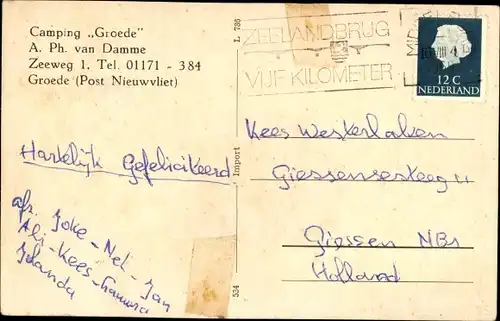 Camping „Groede"
A. Ph. van Damme
Zeeweg 1, Tel. 01171 - 384
Groede (Post Nieuwvliet)
L 786
ZEELANDBRUG
VIJF KILOMETER
12 C
NEDERLAND
Hartelijk Gefeliciteerd
afz. Joke - Nel - Jan
Ali - Kees -
Jolanda
Import
534
Kees Westerlaken
Giessensesteeg 11
Giessen NBr
Holland